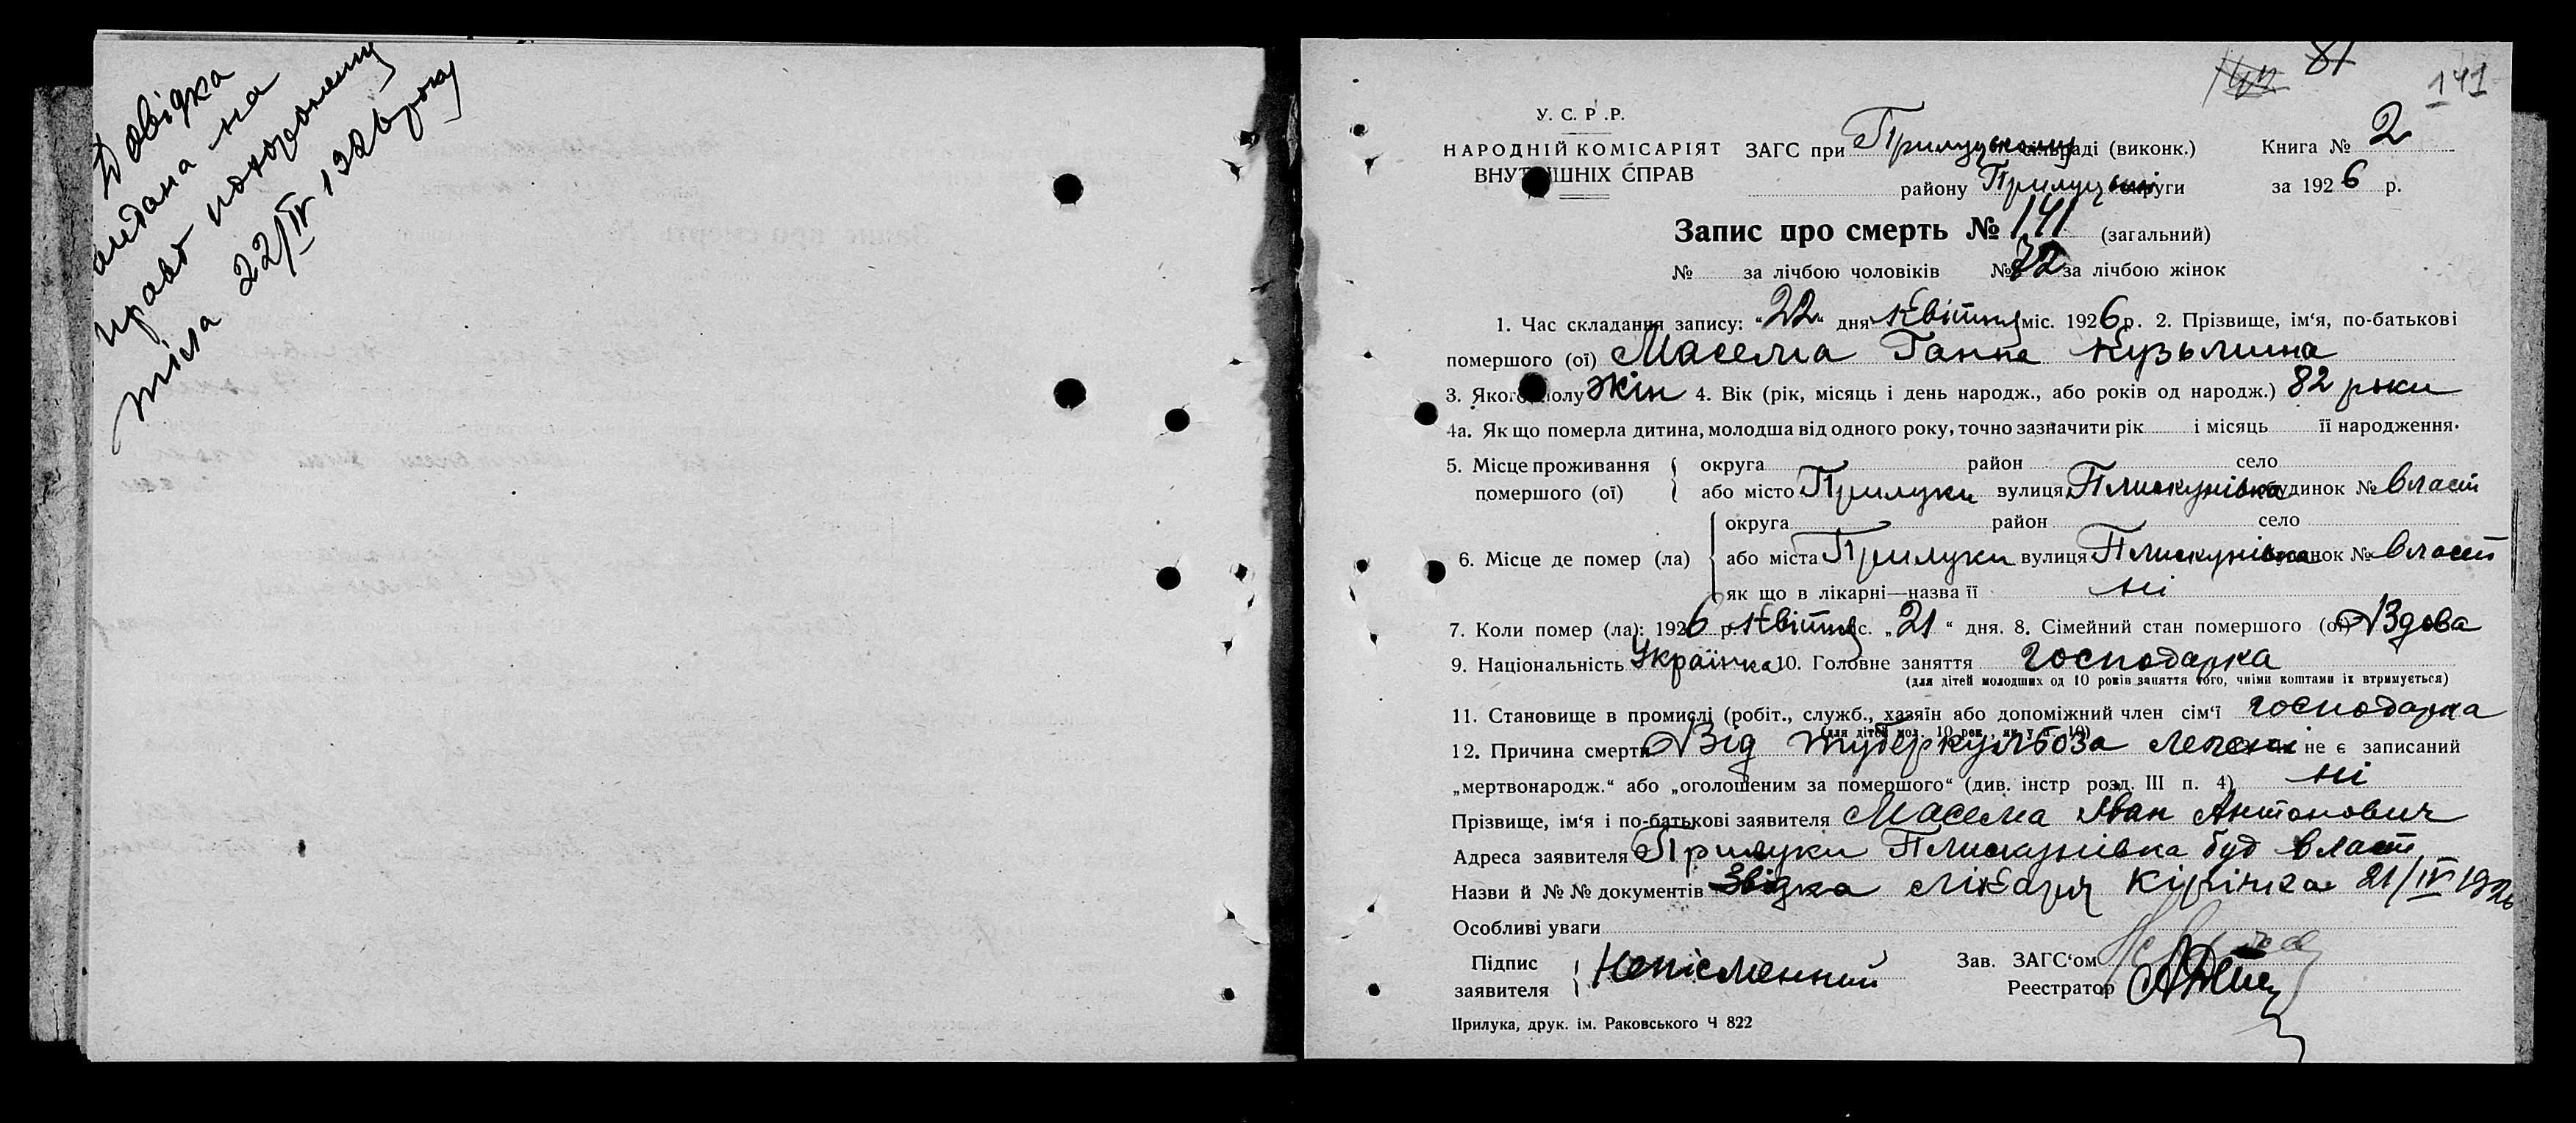 Довідка
видана на
право похоронення
тіла 22/IV 1926 року
81
141
У. С. Р. Р.
НАРОДНІЙ КОМІСАРІЯТ
ВНУТРІШНІХ СПРАВ
ЗАГС при Прилуцькому сільраді (виконк.) Книга № 2
району Прилуцької округи за 1926 р.
Запис про смерть № 141 (загальний)
№ за лічбою чоловіків № 72 за лічбою жінок
1. Час складання запису: "22" дня квітня міс. 1926 р. 2. Прізвище, ім'я, по-батькові
помершого (ої) Масема Ганна Кузьмина
3. Якого полу жін 4. Вік (рік, місяць і день народж., або років од народж.) 82 роки
4а. Як що померла дитина, молодша від одного року, точно зазначити рік і місяць її народження.
5. Місце проживання помершого (ої) { округа район село
або місто Прилуки вулиця Плискунівка будинок № власн
6. Місце де помер (ла) { округа район село
або міста Прилуки вулиця Плискунівка будинок № власн
як що в лікарні—назва її ні
7. Коли помер (ла): 1926 р. квітня міс. „21" дня. 8. Сімейний стан помершого (ої) Вдова
9. Національність Українка 10. Головне заняття господарка
(для дітей молодших од 10 років заняття того, чиїми коштами їх втримується)
11. Становище в промислі (робіт., служб., хазяїн або допоміжний член сім'ї господарка
(для дітей мол. 10 рок., як у п. 10)
12. Причина смерти Від туберкульоза легені не є записаний
„мертвонародж." або „оголошеним за помершого" (див. інстр розд. III п. 4) ні
Прізвище, ім'я і по-батькові заявителя Масема Іван Антонович
Адреса заявителя Прилуки Плискунівка буд власн
Назви й № № документів Звідка лікаря 21/IV 1926
Особливі уваги
Підпис
заявителя { Неписменний
Зав. ЗАГС'ом
Реестратор
Прилука, друк. ім. Раковського Ч 822